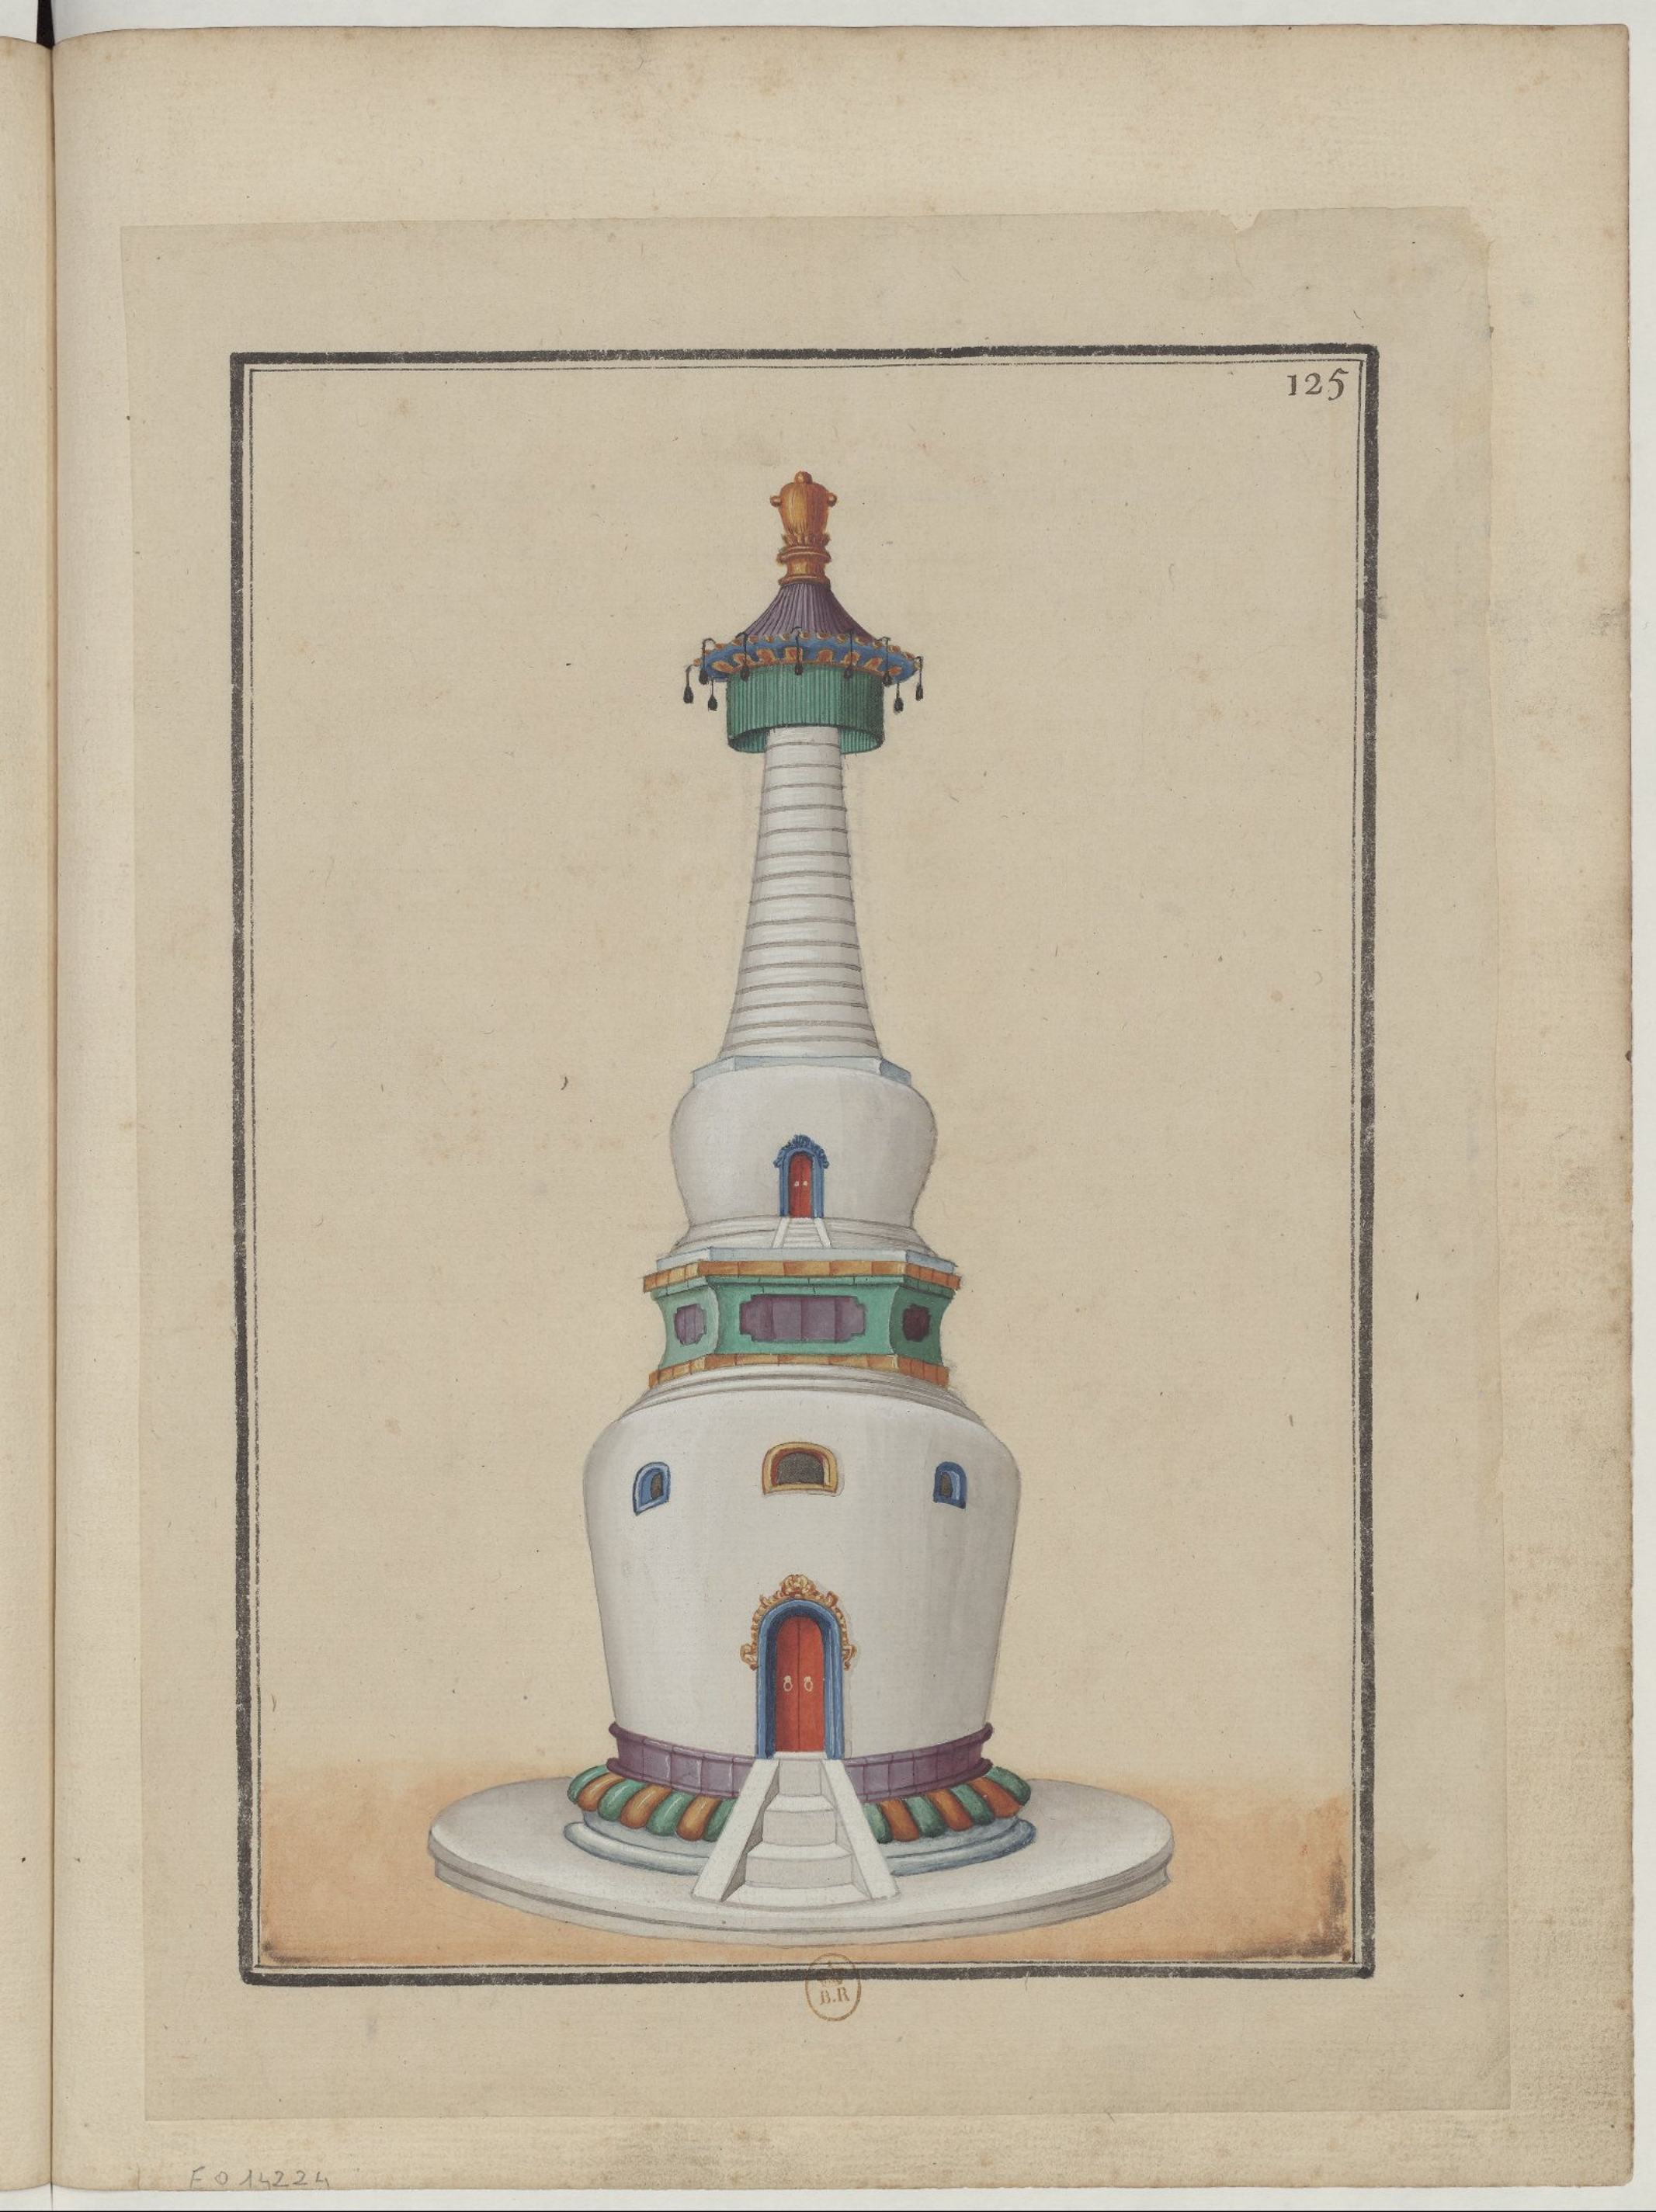 125
B.R
F 0 14224